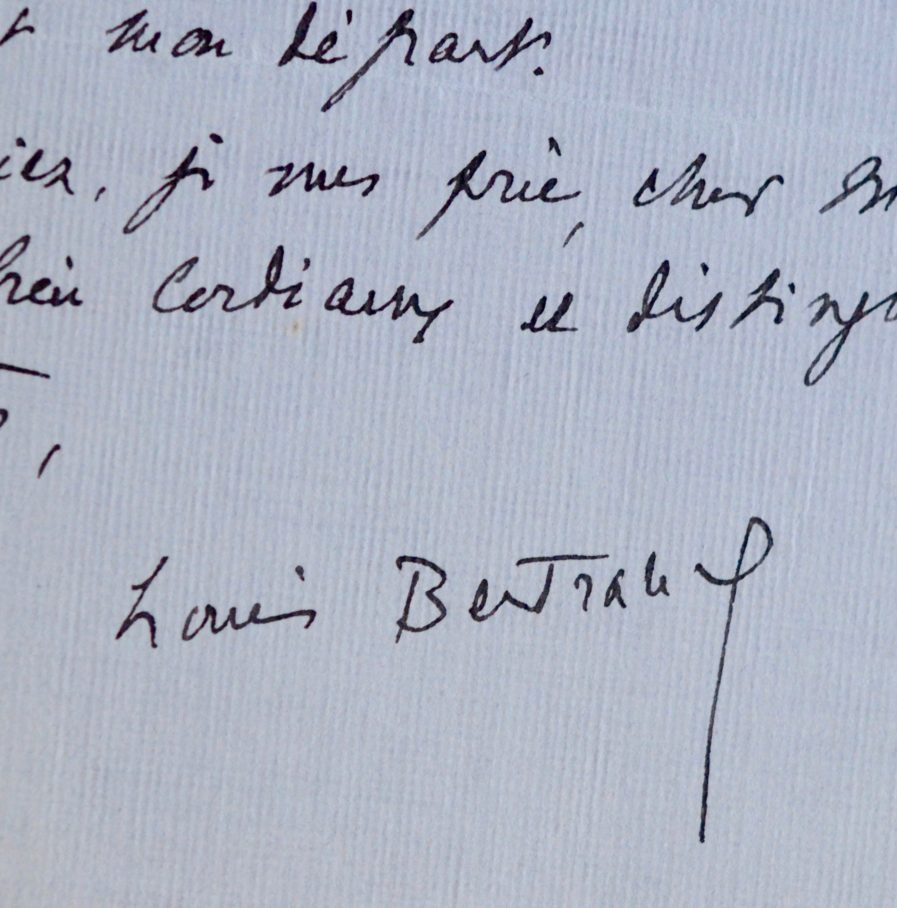 t mon départ.
iez, je vous prie, cher M
bien cordiaux et distingu
,
Louis Bertrand